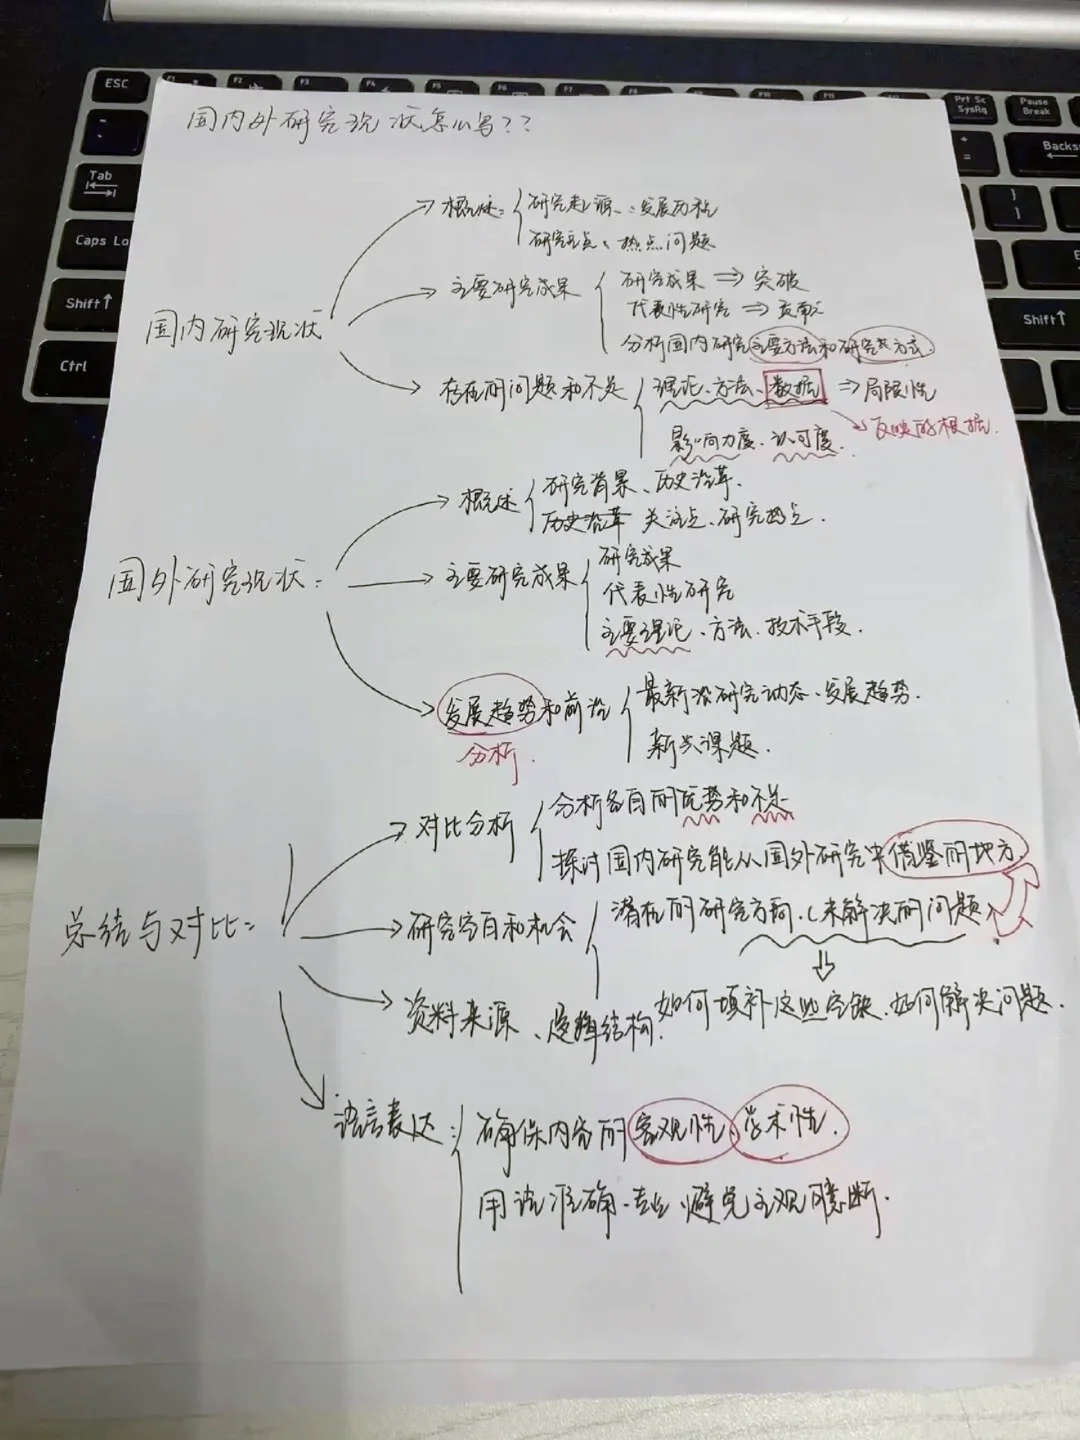 ESC
F1
F2
F3
F4
F5
F6
F7
F8
F9
F10
F11
F12
Prt Sc
SysRq
Pause
Break
Tab
Backs
Caps Lo
Shift
Shift
Ctrl
国内外研究现状怎么写??
国内研究现状
概述:
研究起源、发展历程
研究重点、热点问题
主要研究成果
研究成果 ⇒ 突破
代表性研究 ⇒ 贡献
分析国内研究主要方法和研究方式.
存在的问题和不足
理论、方法、数据 ⇒ 局限性
反映的根据.
影响力度、认可度.
国外研究现状:
概述
研究背景、历史沿革.
历史沿革 关注点、研究热点.
主要研究成果
研究成果
代表性研究
主要理论、方法、技术手段.
发展趋势和前沿
分析.
最新研究动态、发展趋势.
新兴课题.
总结与对比:
对比分析
分析各自的优势和不足
探讨国内研究能从国外研究中借鉴的地方.
研究空白和机会
潜在的研究方向.(未解决的问题)
如何填补这些空缺.如何解决问题.
资料来源、逻辑结构.
语言表达:
确保内容的客观性、学术性.
用语准确、专业、避免主观臆断.